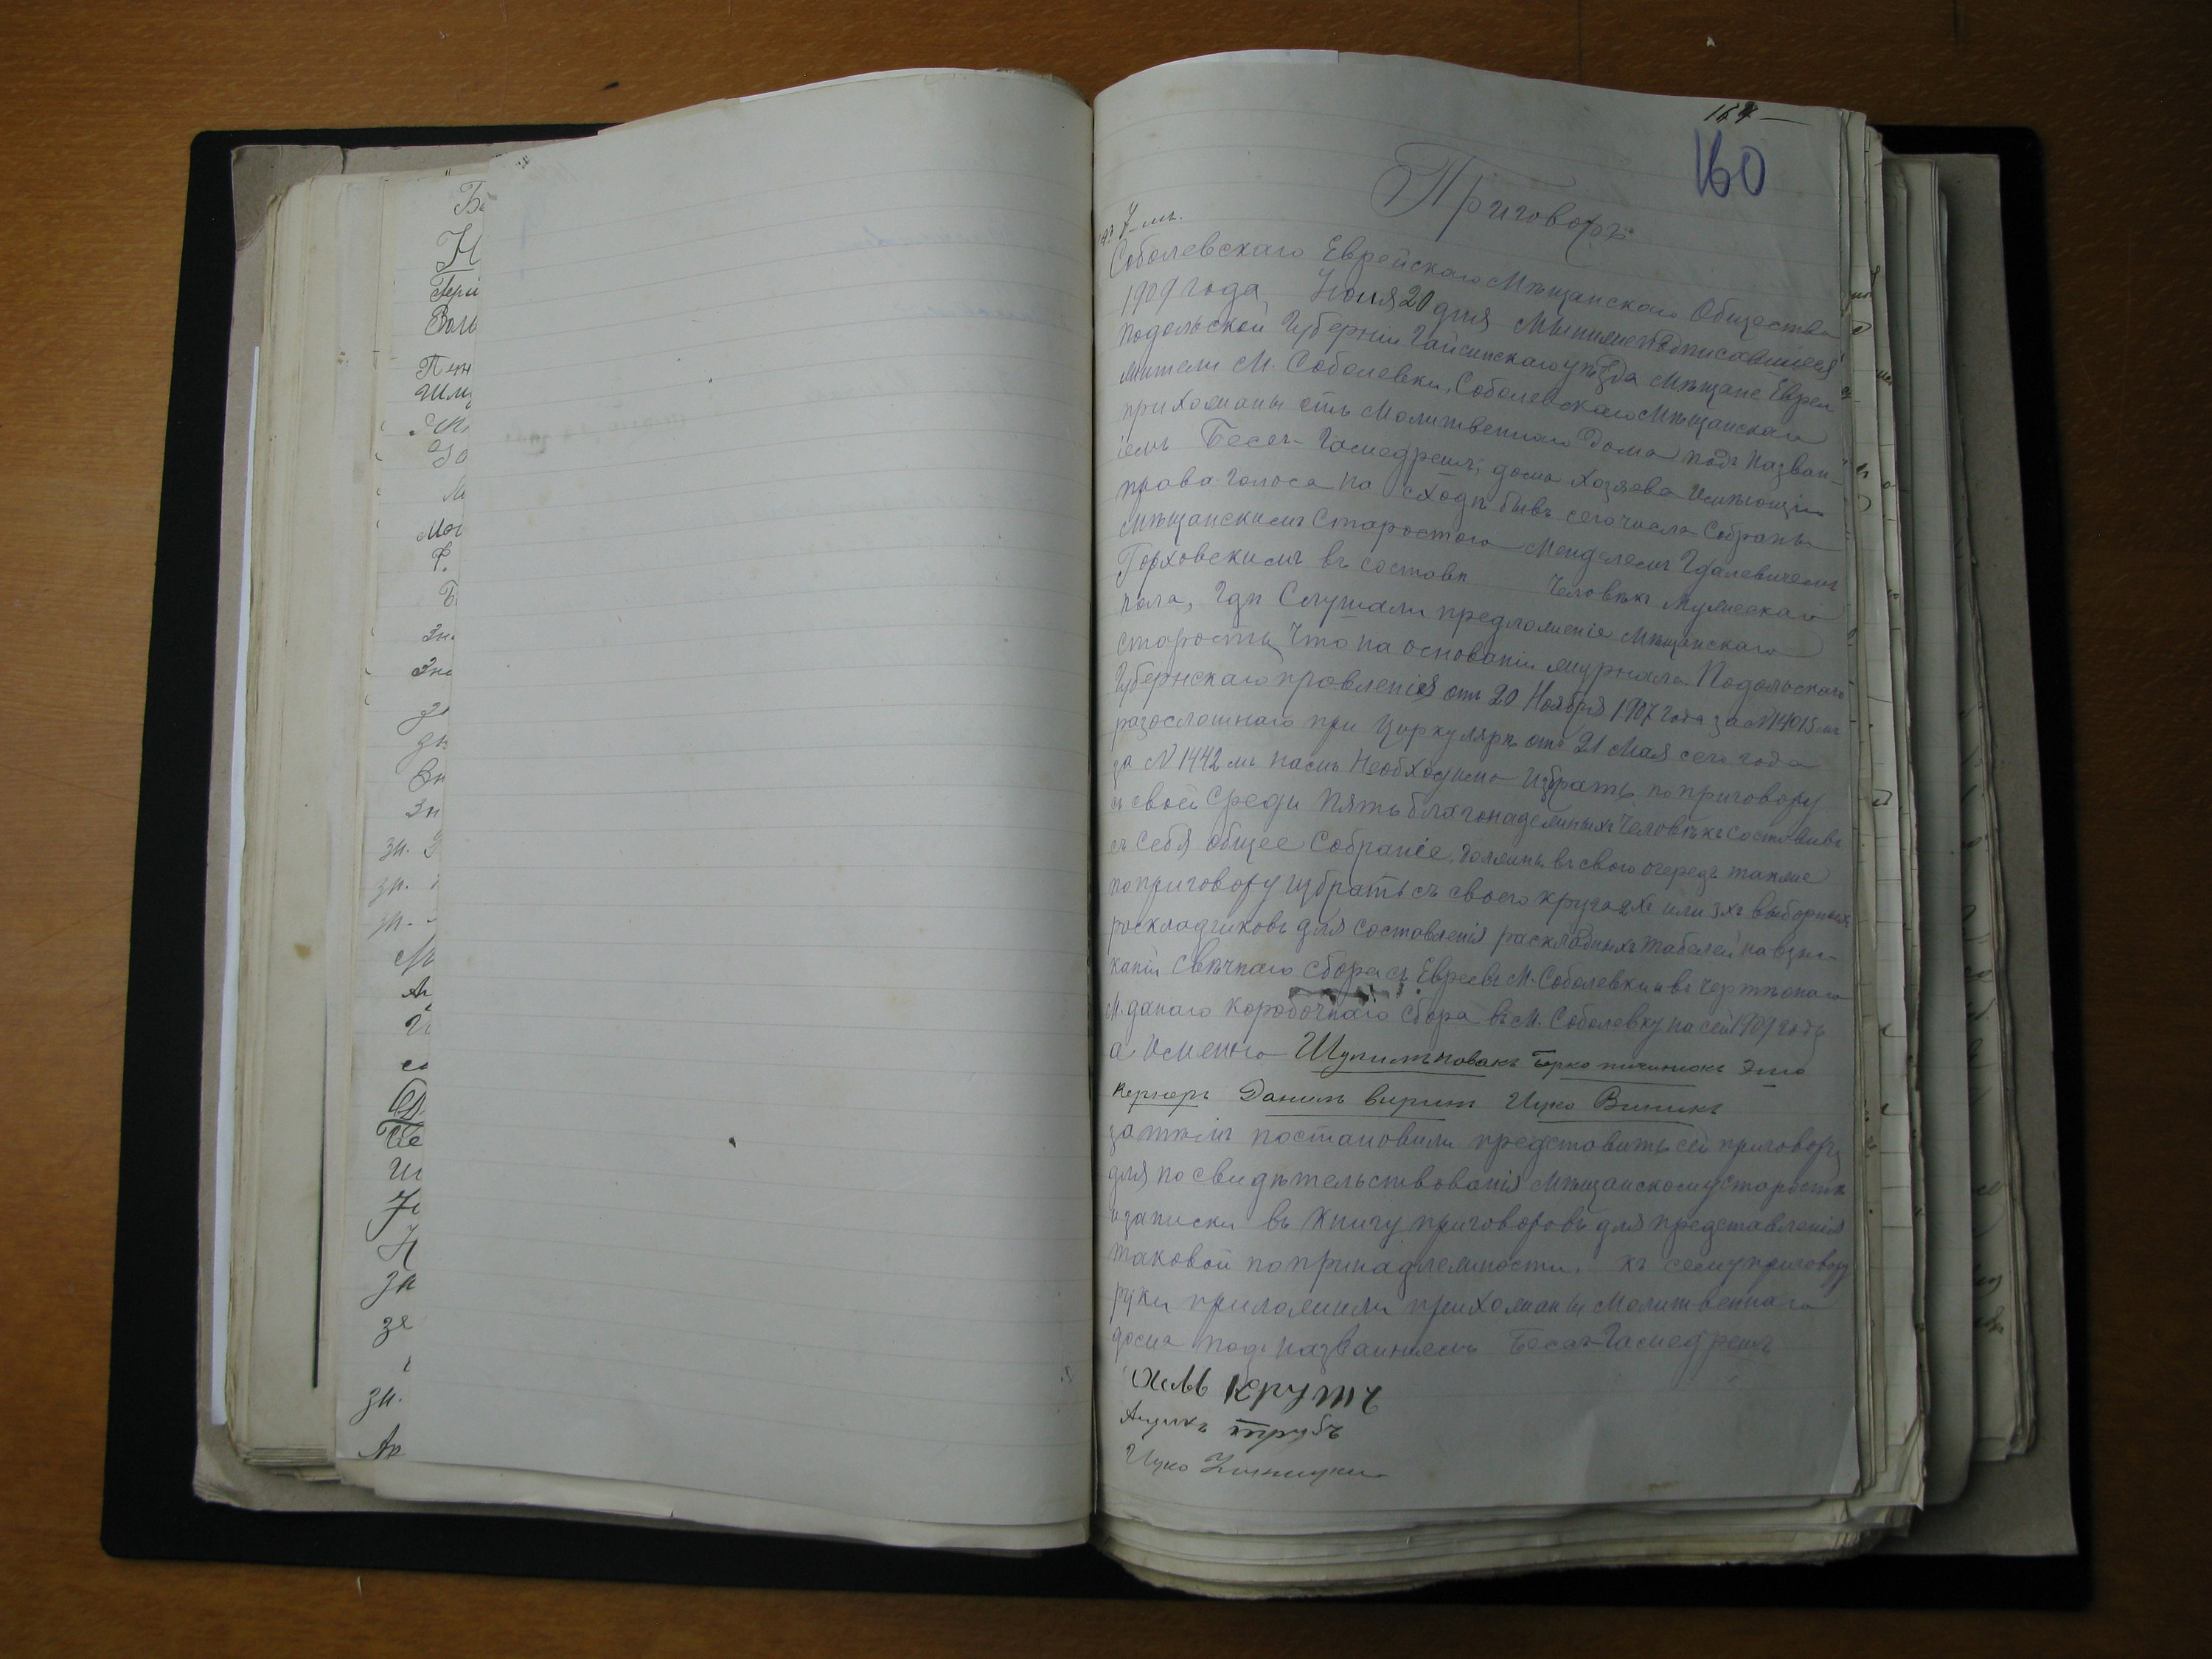 160
Приговоръ
Соболевскаго Еврейскаго Мѣщанскаго Общества
1909 года, Июня 20 дня Мы нижеподписавшіеся
Подольской Губерніи Гайсинскаго уѣзда Мѣщане Евреи
жители М. Соболевки, Соболевскаго Мѣщанскаго
прихожаны Молитвеннаго Дома подъ Назван-
іемъ Бесъ-Гамедрешъ; дома Хозяева Имѣющіи
права голоса на сходѣ бывъ сего числа Собраны
Мѣщанскимъ Старостою Менделемъ Гдалевичемъ
Горховскимъ въ составѣ Человѣкъ Мужескаго
пола, гдѣ Слушали предложеніе Мѣщанскаго
старосты, Что на основаніи журнала Подольскаго
Губернскаго правленія отъ 20 Ноября 1907 года за №14015мъ
разосланнаго при Циркулярѣ отъ 21 Мая сего года
за №1442мъ намъ Необходимо Избрать по приговору
съ своей Среди Пять благонадежныхъ Человѣкъ Составивъ
съ Себя общее Собраніе, должны въ свою очередь также
по приговору избрать съ своего круга 2хъ или 3хъ выборныхъ
роскладчиковъ для составленія раскладныхъ табелей на взис-
каніи Свѣчнаго сбора съ Евреевъ М. Соболевки и въ чертѣ онаго
коробочнаго сбора въ М. Соболевку на сей 1909 годъ
а Именно Шулимъ Новакъ Берко Эльо
Кернеръ Данилъ Ицко Виникъ
затѣмъ постановили представить сей приговоръ
для посвидѣтельствованія Мѣщанскому старостѣ
и записки въ книгу приговоровъ для представленія
таковой по принадлежности. къ сему приговору
руки приложили прихожаны Молитвеннаго
дома подъ названиемъ Бесъ-Гамедрешъ
Крутъ
Трубъ
Ицко